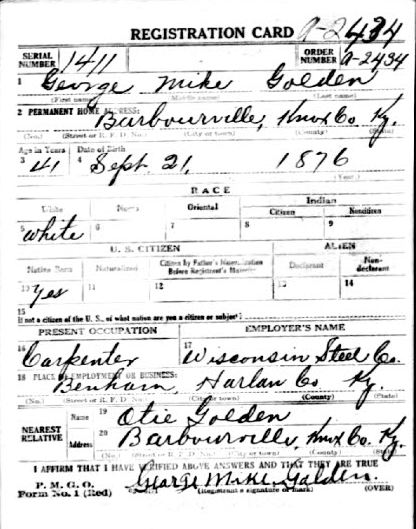 REGISTRATION CARD A-2434
SERIAL NUMBER 1411 ORDER NUMBER A-2434
1 George Mike Golden
(First name) (Middle name) (Last name)
2 PERMANENT HOME ADDRESS:
Barbourville, Knox Co. Ky.
(No.) (Street or R. F. D. No.) (City or town) (County) (State)
Age in Years Date of Birth
3 41 4 Sept. 21, 1876
(Year.)
RACE
White Negro Oriental Indian
Citizen Noncitizen
5 White 6 7 8 9
U. S. CITIZEN ALIEN
Native Born Naturalized Citizen by Father's Naturalization Before Registrant's Majority Declarant Non-declarant
10 Yes 11 12 13 14
15
If not a citizen of the U. S., of what nation are you a citizen or subject?
PRESENT OCCUPATION EMPLOYER'S NAME
16 Carpenter 17 Wisconsin Steel Co.
18 PLACE OF EMPLOYMENT OR BUSINESS:
Benham, Harlan Co Ky.
(No.) (Street or R. F. D. No.) (City or town) (County) (State)
NEAREST RELATIVE Name 19 Otie Golden
Address 20 Barbourville, Knox Co. Ky.
(No.) (Street or R. F. D. No.) (City or town) (County) (State)
I AFFIRM THAT I HAVE VERIFIED ABOVE ANSWERS AND THAT THEY ARE TRUE
P. M. G. O.
Form No. 1 (Red) George Mike Golden.
(Registrant's signature or mark) (OVER)